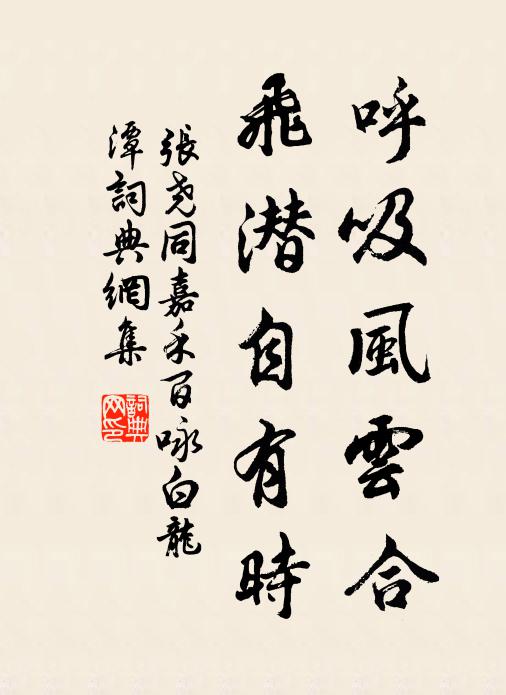 呼吸風雲合
飛潜自有時
張堯同嘉禾百咏白龍
潭詞典網集
詞典
网印